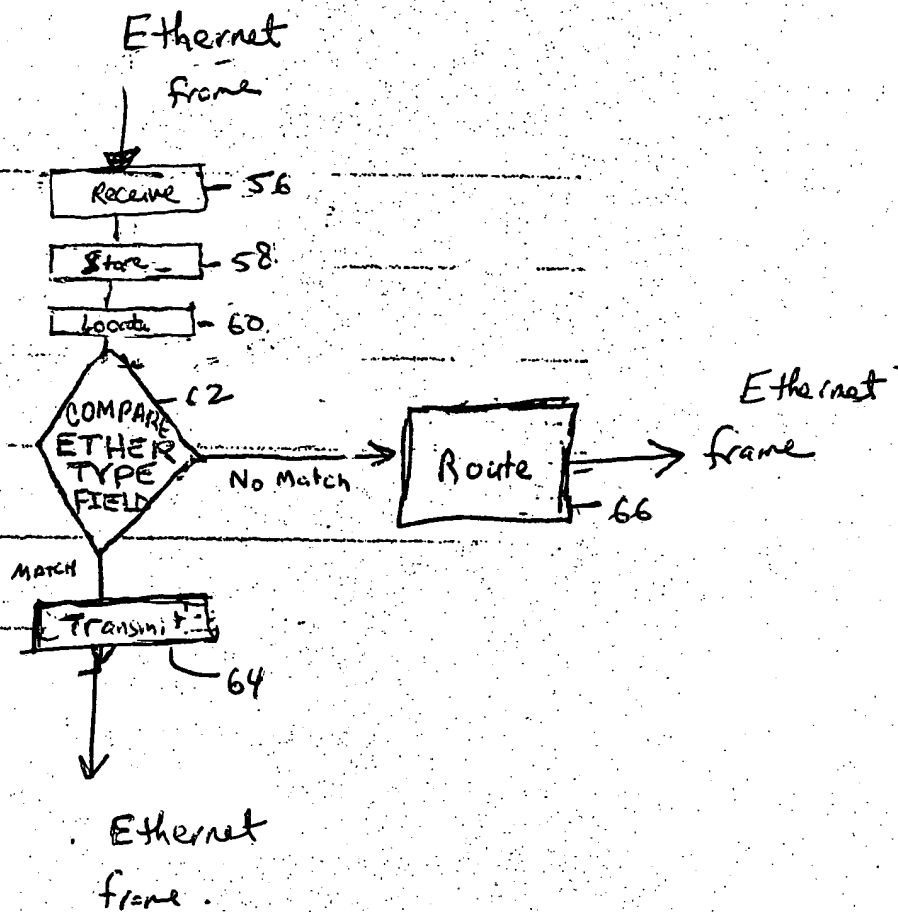 Ethernet
frame
Receive
56
Store
58
Locate
60
62
COMPARE
ETHER
TYPE
FIELD
No Match
Route
66
Ethernet
frame
MATCH
Transmit
64
Ethernet
frame